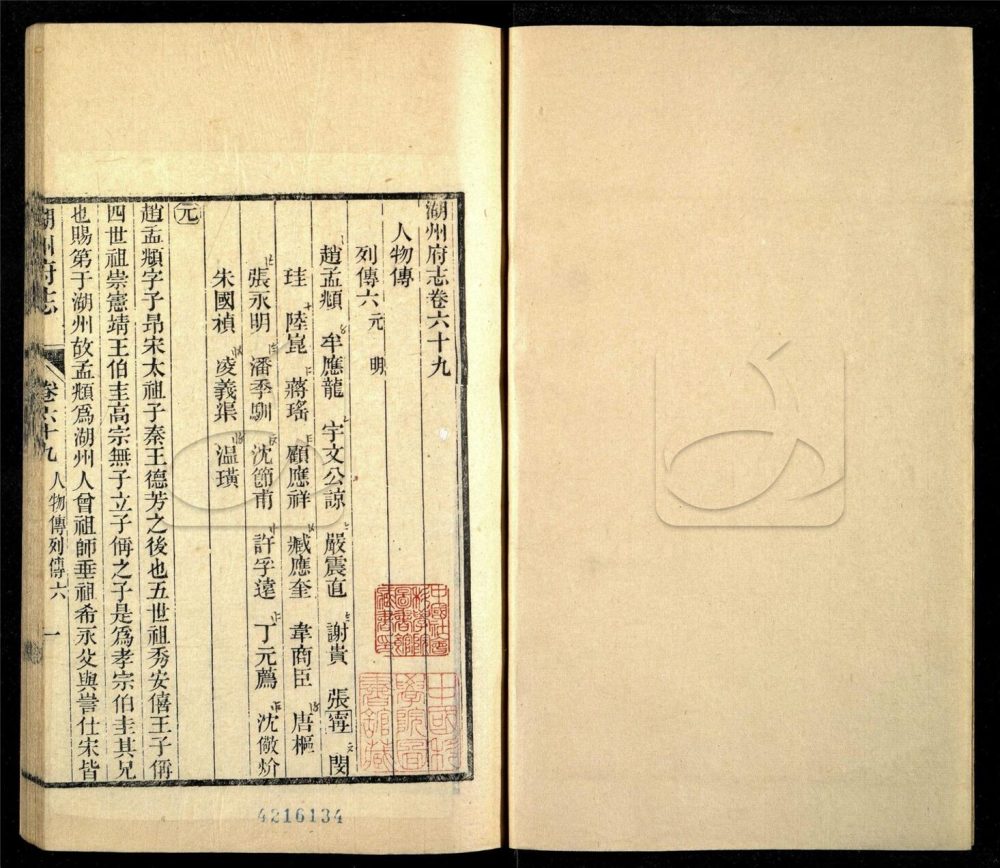 湖州府志卷六十九
人物傳
列傳六 元 明
趙孟頫 牟應龍 宇文公諒 嚴震直 謝貴 張寗 閔
珪 陸崑 蔣瑤 顧應祥 臧應奎 韋商臣 唐樞
張永明 潘季馴 沈節甫 許孚遠 丁元薦 沈儆炌
朱國禎 凌義渠 温璜
元
趙孟頫字子昂宋太祖子秦王德芳之後也五世祖秀安僖王子偁
四世祖崇憲靖王伯圭高宗無子立子偁之子是爲孝宗伯圭其兄
也賜第于湖州故孟頫爲湖州人曾祖師垂祖希永父與訔仕宋皆
湖州府志 卷六十九 人物傳列傳六 一
4216134